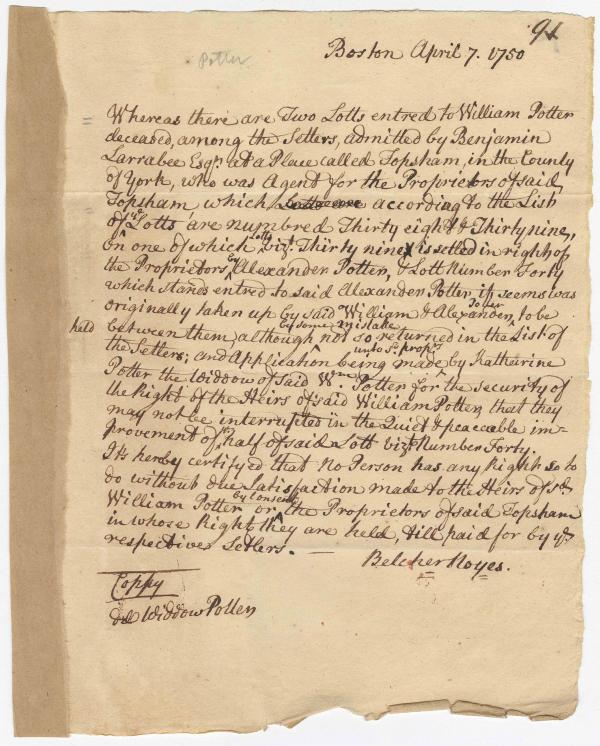 94
Potter
Boston April 7. 1750
Whereas there are Two Lotts entred to William Potter
deceased, among the Setlers, admitted by Benjamin
Larrabee Esqr. at a Place called Topsham, in the County
of York, who was Agent for the Proprietors of said
Topsham, which according to the List
of ye Lotts are numbred Thirty eight & Thirty nine,
on one of which Lotts vizt. Thirty nine is setled in right of
the Proprietors by Alexander Potter, & Lott Number Forty
which stands entred to said Alexander Potter it seems was
originally taken up by said William & Alexander Potter, to be
held between them, although by some mistake not so returned in the List of
the Setlers; and Application being made unto sd. proprs. by Katharine
Potter the Widdow of said Wm. Potter for the security of
the Right of the Heirs of said William Potter, that they
may not be interrupted in the Quiet & peaceable im=
provement of ye half of said Lott vizt. Number Forty.
It's hereby certifyed that no Person has any Right so to
do without due Satisfaction made to the Heirs of sd.
William Potter or by Consent the Proprietors of said Topsham
in whose Right they are held, till paid for by ye.
respective Setlers. —
Belcher Noyes.
Coppy
Widdow Potter